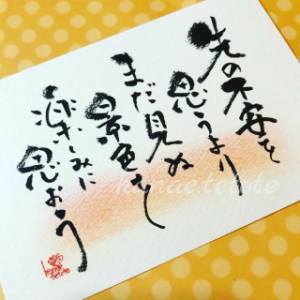 先の不安を
思うより
まだ見ぬ
景色を
楽しみに
思おう
kanae.tetote